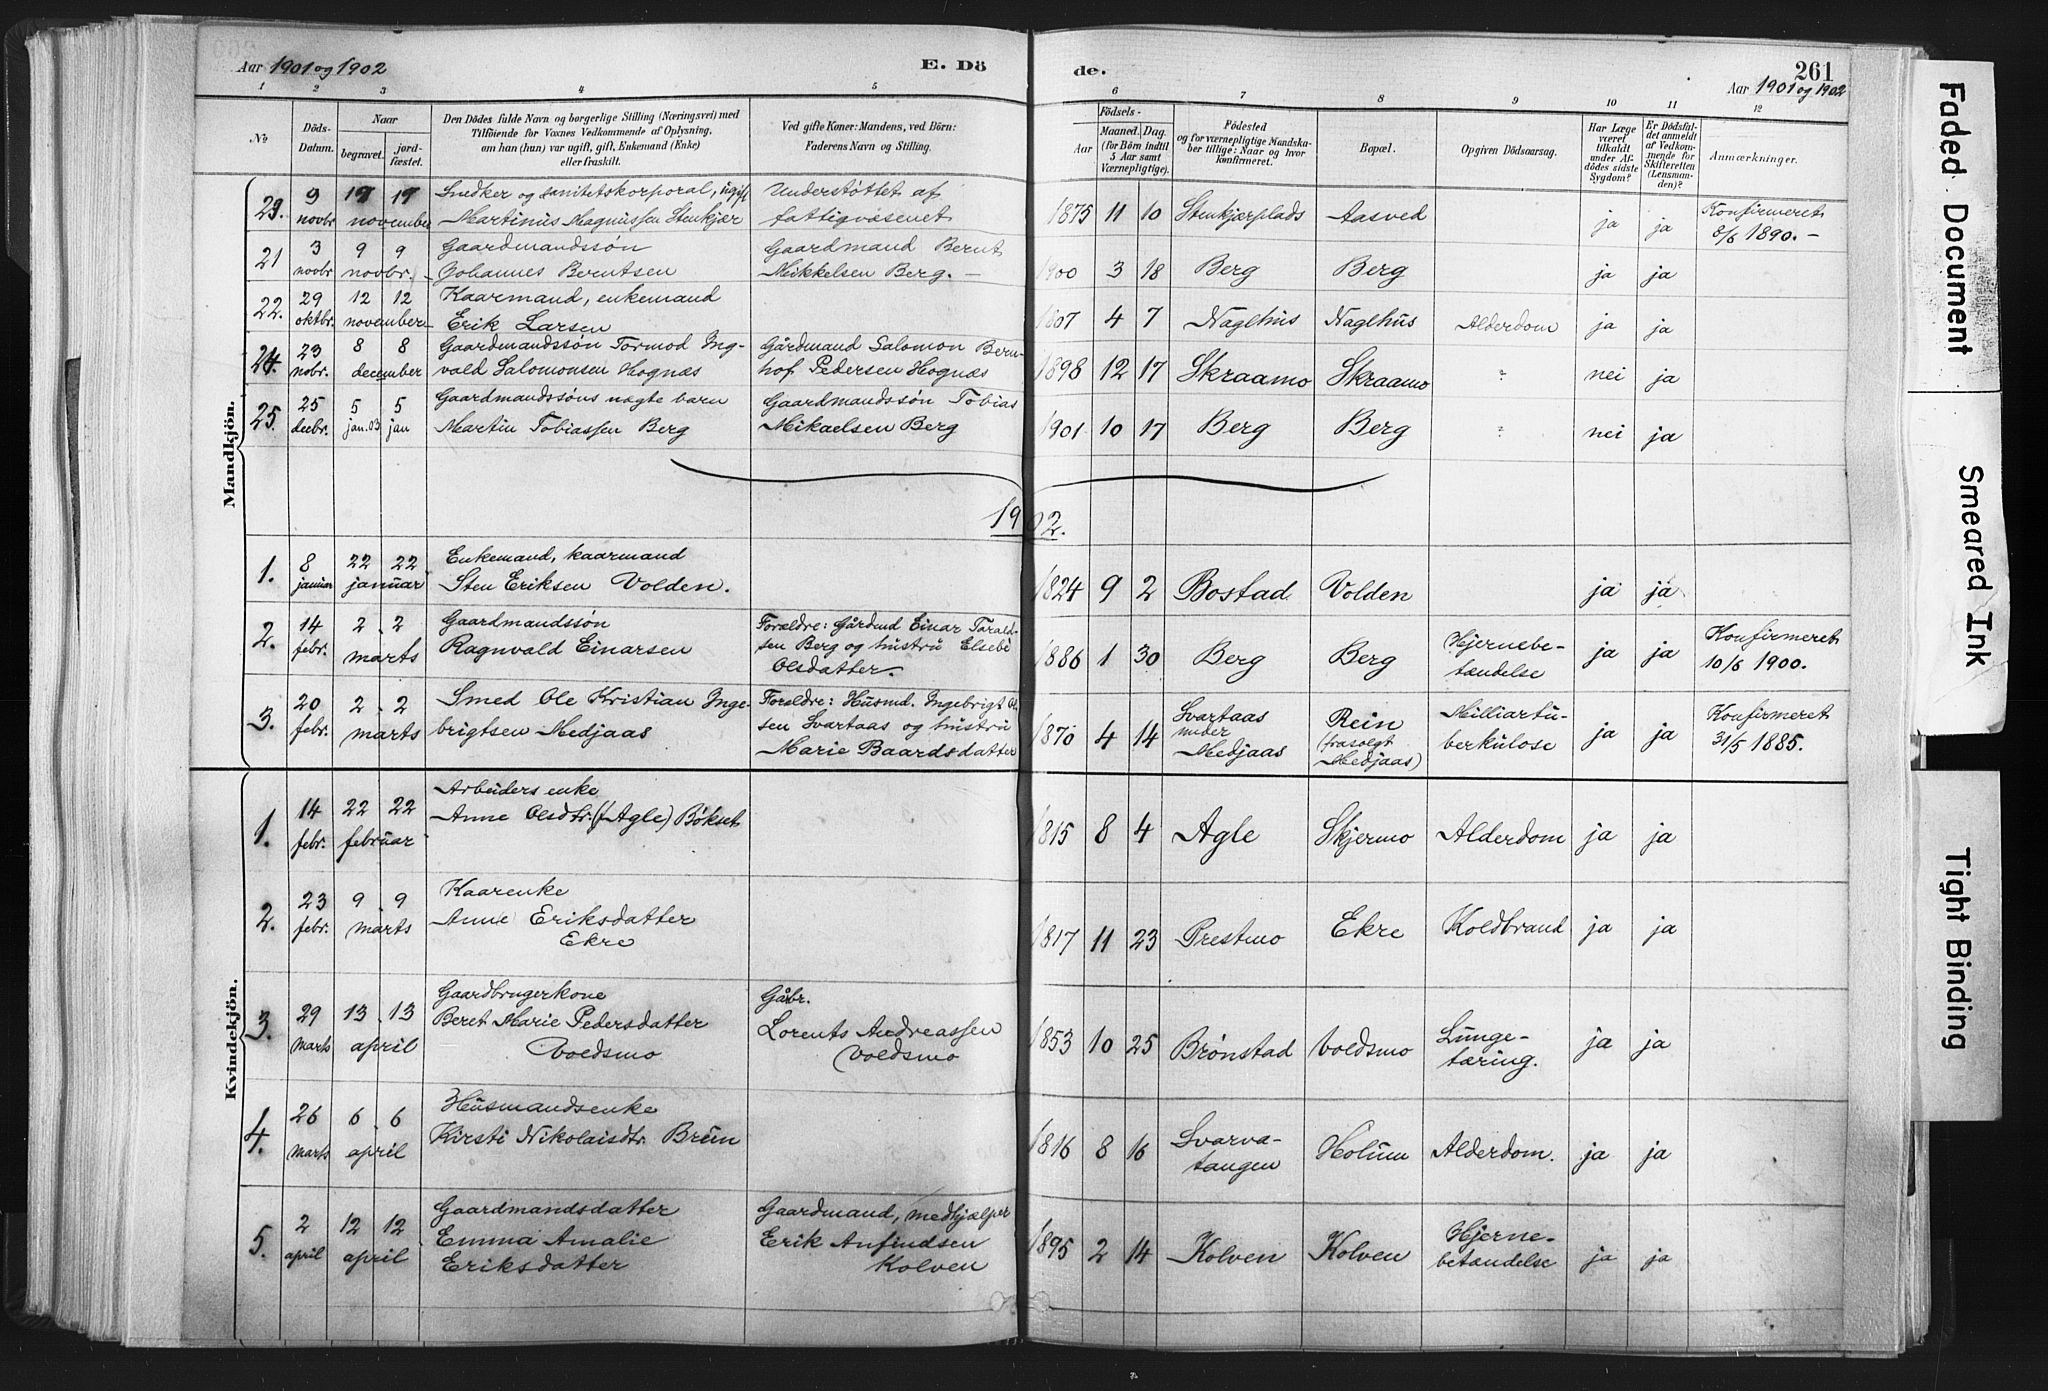 Aar 1901 og 1902
E. Dö
de.
261
Aar 1901 og 1902
1 2 3 4 5 6 7 8 9 10 11 12
No
Döds-
Datum.
Naar
begravet.
jord-
fæstet.
Den Dödes fulde Navn og borgerlige Stilling (Næringsvei) med
Tilföiende for Voxnes Vedkommende af Oplysning,
om han (hun) var ugift, gift, Enkemand (Enke)
eller fraskilt.
Ved gifte Koner: Mandens, ved Börn:
Faderens Navn og Stilling.
Födsels-
Aar
Maaned. Dag.
(for Börn indtil
5 Aar samt
Værnepligtige).
Födested
og for værnepligtige Mandska-
ber tillige: Naar og hvor
konfirmeret.
Bopæl.
Opgiven Dödsaarsag.
Har Læge
været
tilkaldt
under Af-
dödes sidste
Sygdom?
Er Dödsfal-
det anmeldt
af Vedkom-
mende for
Skifteretten
(Lensman-
den)?
Anmærkninger.
Mandkjön.
23. 9 novbr. 17 17 november
Snedker og sanitetskorporal, ugift
Martinus Magnussen Stenkjær
Understøttet af
fattigvæsenet
1875 11 10 Stenkjærplads Aasved ja ja
Konfirmeret
8/6 1890. –
21 3 novbr 9 9 novbr. –
Gaardmandssøn
Johannes Berntsen
Gaardmand Bernt
Mikkelsen Berg. –
1900 3 18 Berg Berg ja ja
22. 29 oktbr. 12 12 november
Kaarmand, enkemand
Erik Larsen
1807 4 7 Naglhus Naglhus Alderdom ja ja
24. 23 nobr. 8 8 december
Gaardmandssøn Tormod Ing-
vald Salomonsen Hognæs
Gårdmand Salomon Bern-
hof Pedersen Hognæs
1898 12 17 Skraamo Skraamo ? nei ja
25. 25 decbr. 5 jan. 03 5 jan
Gaardmandssøns uægte barn
Martin Tobiassen Berg
Gaardmandssøn Tobias
Mikaelsen Berg
1901 10 17 Berg Berg ? nei ja
1902.
1. 8 januar 22 22 januar
Enkemand, kaarmand
Sten Eriksen Volden.
1824 9 2 Bostad Volden ja ja
2. 14 febr. 2 2 marts
Gaardmandssøn
Ragnvald Einarsen
Forældre: Gårdmd Einar Tarald-
sen Berg og hustru Elsebe
Olsdatter.
1886 1 30 Berg Berg
Hjernebe-
tændelse
ja ja
Konfirmeret
10/6 1900.
3. 20 febr. 2 2 marts
Smed Ole Kristian Inge-
brigtsen Medjaas
Forældre: Husmd. Ingebrigt Ol-
sen Svartaas og hustru
Marie Baardsdatter
1870 4 14
Svartaas
under
Medjaas
Rein
(frasolgt
Medjaas)
Milliartu-
berkulose
ja ja
Konfirmeret
31/5 1885.
Kvindekjön.
1. 14 febr. 22 22 februar
Arbeiders enke
Anne Olsdtr. (f Agle) Bøkset
1815 8 4 Agle Skjermo Alderdom ja ja
2. 23 febr. 9 9 marts
Kaarenke
Anne Eriksdatter
Ekre
1817 11 23 Prestmo Ekre Koldbrand ja ja
3. 29 marts 13 13 april
Gaardbrugerkone
Beret Marie Pedersdatter
Voldsmo
Gåbr.
Lorents Andreassen
Voldsmo
1853 10 25 Brønstad Voldsmo
Lunge-
tæring.
ja ja
4. 26 marts 6 6 april
Husmandsenke
Kirsti Nikolaisdtr. Brun
1816 8 16
Svarva-
tangen
Holum Alderdom. ja ja
5. 2 april 12 12 april
Gaardmandsdatter
Emma Amalie
Eriksdatter
Gaardmand, medhjælper
Erik Anfindsen
Kolven
1895 2 14 Kolven Kolven
Hjerne-
betændelse
ja ja
Faded Document
Smeared Ink
Tight Binding